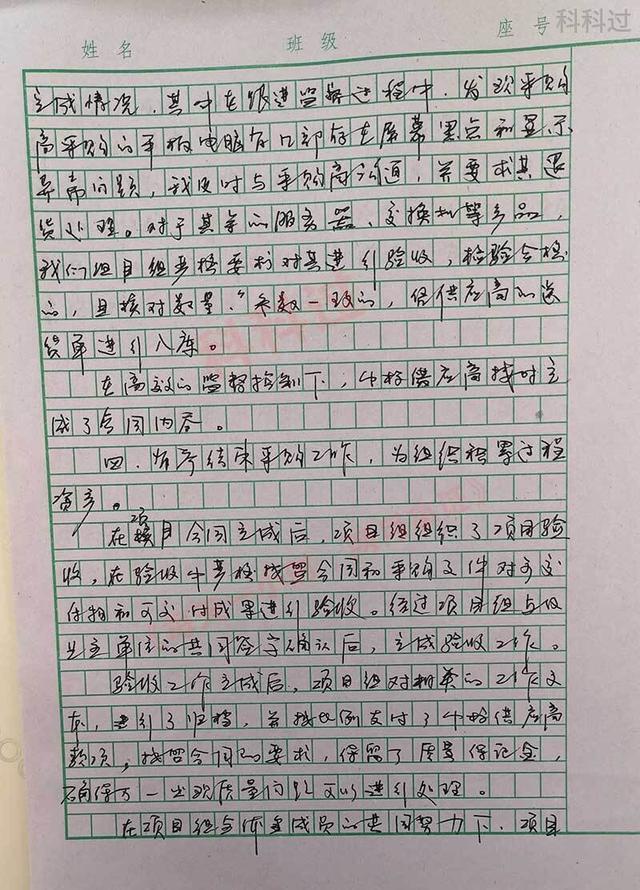 科科过
姓名 班级 座号
完成情况，其中在跟进监督过程中，发现采购
商采购的平板电脑有几部存在屏幕黑点和显示
异常问题，我及时与采购商沟通，并要求其退
货处理。对于其等的服务器、交换机等产品，
我们组目组严格要求对其进行验收，检验合格
的，且核对数量、参数一致的，供应商的送
货单进行入库。
在高效的监督控制下，中标供应商按时完
成了合同内容。
四、有序结束采购工作，为组织积累过程
资产。
在项目合同完成后，项目组组织了项目验
收，在验收中严格按照合同和采购文件对可交
付物和可交付成果进行验收。经过项目组与
业主单位的共同签字确认后，完成验收工作。
验收工作完成后，项目组对相关的工作文
本，进行了归档，并按比例支付了中标供应商
款项，按照合同的要求，保留了质量保证金，
确保万一出现质量问题可以进行处理。
在项目组全体全成员的共同努力下，项目